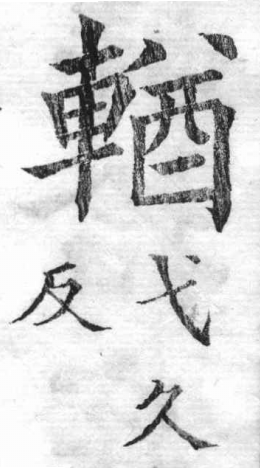 輶
弋久
反